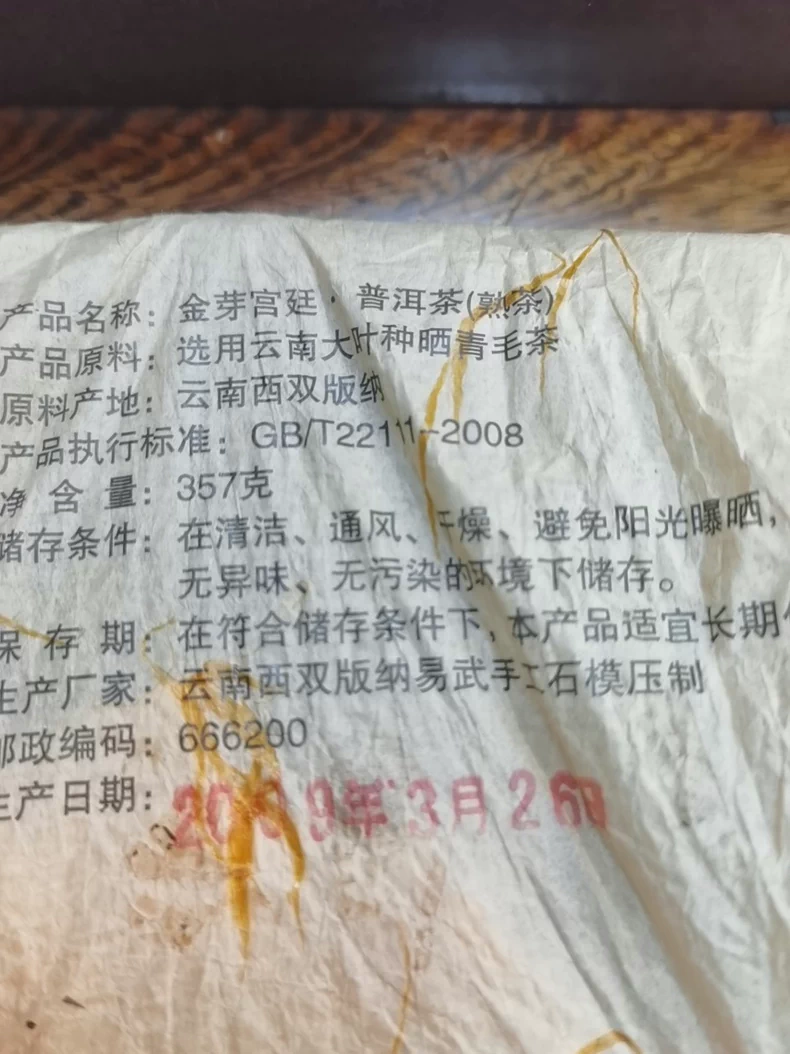 产品名称：金芽宫廷·普洱茶(熟茶)
产品原料：选用云南大叶种晒青毛茶
原料产地：云南西双版纳
产品执行标准：GB/T22111-2008
净含量：357克
储存条件：在清洁、通风、干燥、避免阳光曝晒，
无异味、无污染的环境下储存。
保存期：在符合储存条件下，本产品适宜长期
生产厂家：云南西双版纳易武手工石模压制
邮政编码：666200
生产日期：2009年3月26日